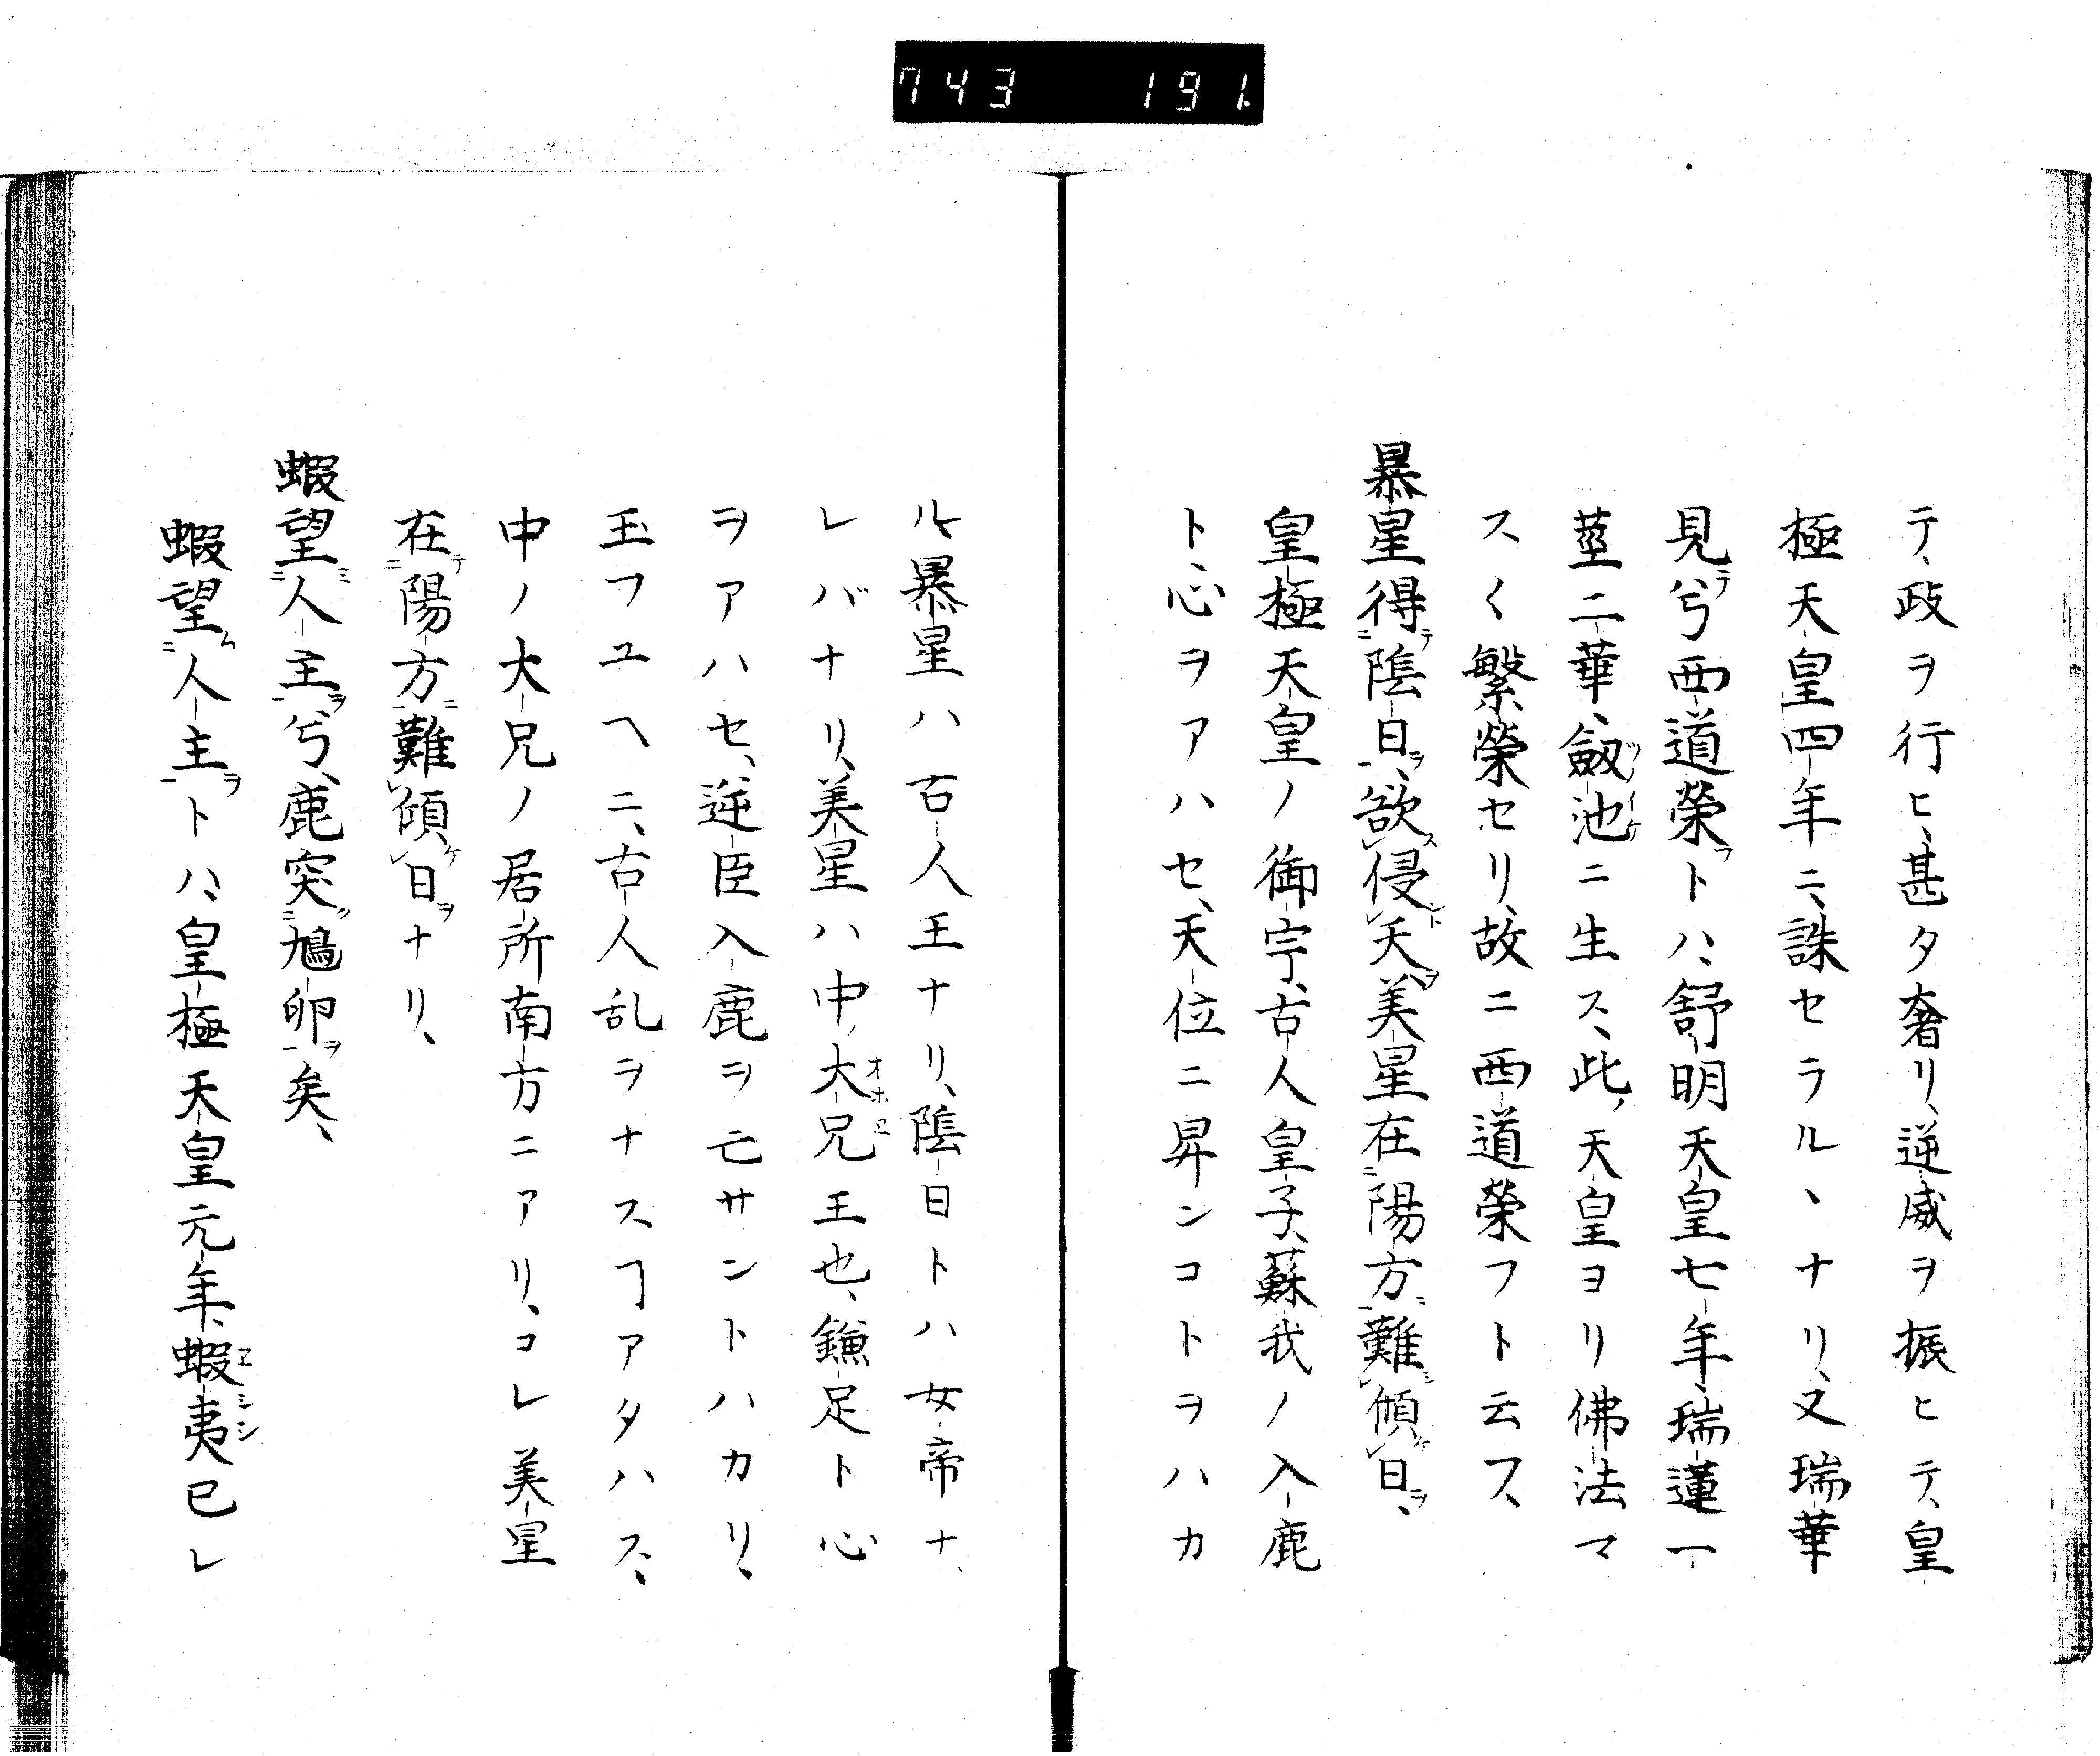 743 191.
テ、政ヲ行ヒ、甚タ奢リ、逆威ヲ振ヒテ、皇
極天皇四年ニ、誅セラルヽナリ、又瑞華
見テ兮西道榮フトハ、舒明天皇七年、瑞蓮一
莖二華、劔池ツルイケニ生ス、此ノ天皇ヨリ佛法マ
スく繁榮セリ、故ニ西道榮フト云フ、
暴星得テ二陰日ヲ一、欲スレ侵ントレ天ヲ美星在二陽方ニ一難シレ傾ケレ日ヲ、
皇極天皇ノ御宇、古人皇子、蘇我ノ入鹿
ト、心ヲアハセ、天位ニ昇ンコトヲハカ
ル暴星ハ古人王ナリ、陰日トハ女帝ナ
レバナリ、美星ハ中ノ大兄オホヱ王也、鎌足ト心
ヲアハセ、逆臣入鹿ヲ亡サントハカリ、
玉フユヘニ、古人乱ヲナスヿアタハス、
中ノ大兄ノ居所南方ニアリ、コレ美星
在テ二陽方ニ一難レ傾ケレ日ヲナリ、
蝦望ミ二人主ヲ一兮、鹿突ク二鳩卵ヲ一矣、
蝦望ム二人主ヲ一トハ、皇極天皇元年、蝦夷ヱミシ已レ